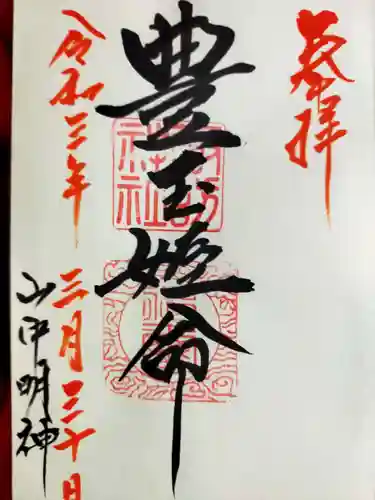 奉拝
豊玉姫命
令和三年三月三十日
山中明神